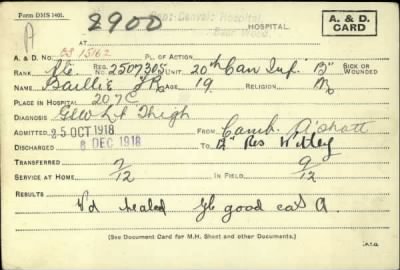 Form DMS 1401.
A
2900
Can: Convals: Hospital,
HOSPITAL.
Bear Wood.
A. & D. CARD
AT
A. & D. No. 15162
PL. OF ACTION
RANK Pte. REG. No. 2507365 UNIT. 20th Can Inf. "B" SICK OR WOUNDED
NAME Baillie J AGE 19. RELIGION M
PLACE IN HOSPITAL 207C
DIAGNOSIS GSW Lt Thigh
ADMITTED 25 OCT 1918 FROM Camb. A'shott
DISCHARGED 6 DEC 1918 TO "A" Res Witley
TRANSFERRED
SERVICE AT HOME 7/12 IN FIELD 9/12
RESULTS
Wd healed good cat A.
(See Document Card for M.H. Sheet and other Documents.)